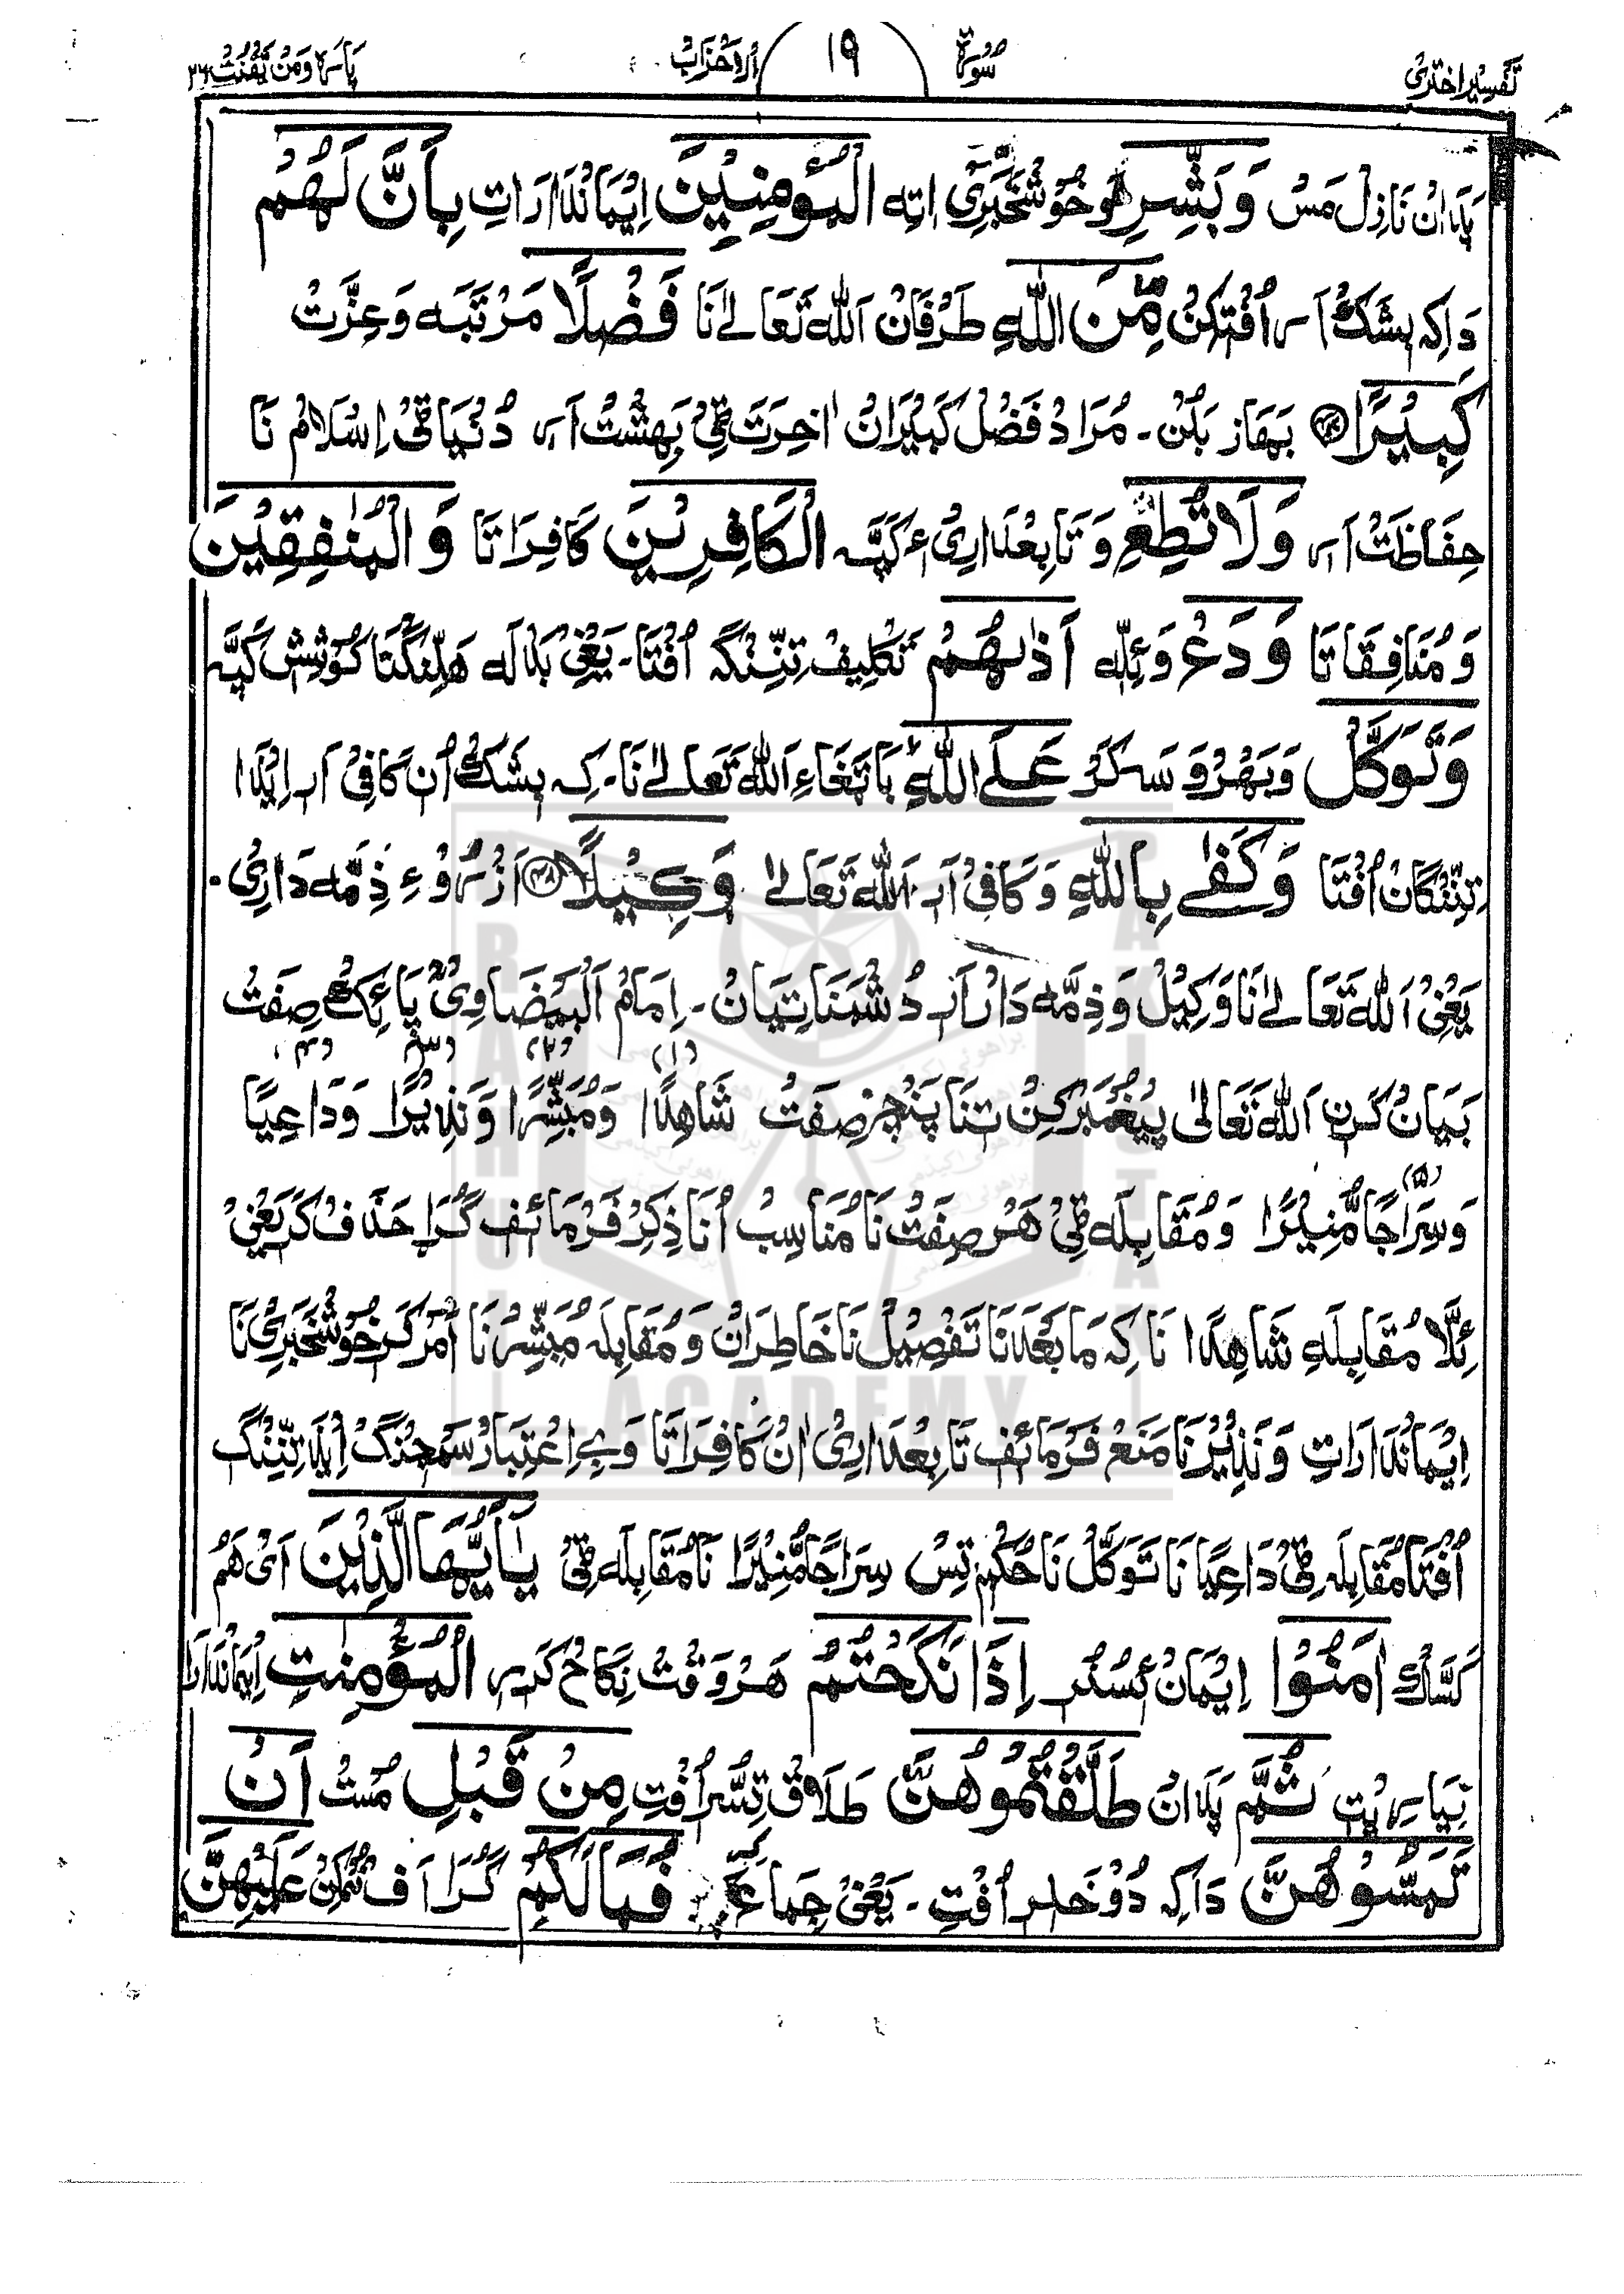 تفسیر اختری سورة ١٩ الاحزاب پاره ومن یقنت ٢٢
پدان نازل مس وَبَشِّرِ هو خوشخبری اته الْمُؤْمِنِيْنَ ایماندارات بِاَنَّ لَهُمْ
داکه بشک ار افتکن مِّنَ اللّٰهِ طرفان الله تعالے نا فَضْلًا مرتبه و عزت
كَبِيْرًا بهاز بلن۔ مراد فضل کبیران اخرت ٹی بهشت ار دنیا ٹی اسلام نا
حفاظت ار وَلَا تُطِعِ و تابعداری کپه الْكَافِرِيْنَ کافراتا وَالْمُنٰفِقِيْنَ
و منافقاتا وَدَعْ و ئله اَذٰىهُمْ تکلیف تننگه افتا۔ یعنی بداله هلنگتا کوشش کپه
وَتَوَكَّلْ و بهروسه کر عَلَے اللّٰهِ باتغاء الله تعالے نا۔ که بشک ان کافی ار ایذا
تننگان افتا وَكَفٰے بِاللّٰهِ و کافی ار الله تعالے وَكِيْلًا از روء ذمه داری۔
یعنی الله تعالے نا وکیل و ذمه دار ار دشمناتیان۔ امام البیضاوی پائک صفت
بیان کرن الله تعالیٰ پیغمبرکن تنا پنچ صفت شَاهِدًا (١) وَمُبَشِّرًا (٢) وَنَذِيْرًا (٣) وَدَاعِيًا (٤)
وَسِرَاجًا مُّنِيْرًا (٥) و مقابله ٹی هر صفت نا مناسب انا ذکر فرمائف گرا حذف کر یعنی
ئلا مقابله شَاهِدًا نا که مابعد نا تفصیل نا خاطران و مقابله مبشر نا امر کر خوشخبری نا
ایماندارات و نذیر نا منع فرمائف تابعداری ان کافراتا و بے اعتبار سمجنگ ایذا تننگ
افتا مقابله ٹی دَاعِيًا نا توکل نا حکم تس سِرَاجًا مُّنِيْرًا نا مقابله ٹی يٰاَيُّهَا الَّذِيْنَ ای هم
کساک اٰمَنُوْا ایمان هسنر اِذَا نَكَحْتُمُ هروقت نکاح کرر الْمُؤْمِنٰتِ ایماندارا
نیاریت ثُمَّ پدان طَلَّقْتُمُوْهُنَّ طلاق تسر افت مِنْ قَبْلِ مست اَنْ
تَمَسُّوْهُنَّ داکه دو خلر افت۔ یعنی جماع فَمَالَكُمْ گرا اف نمکن عَلَيْهِنَّ